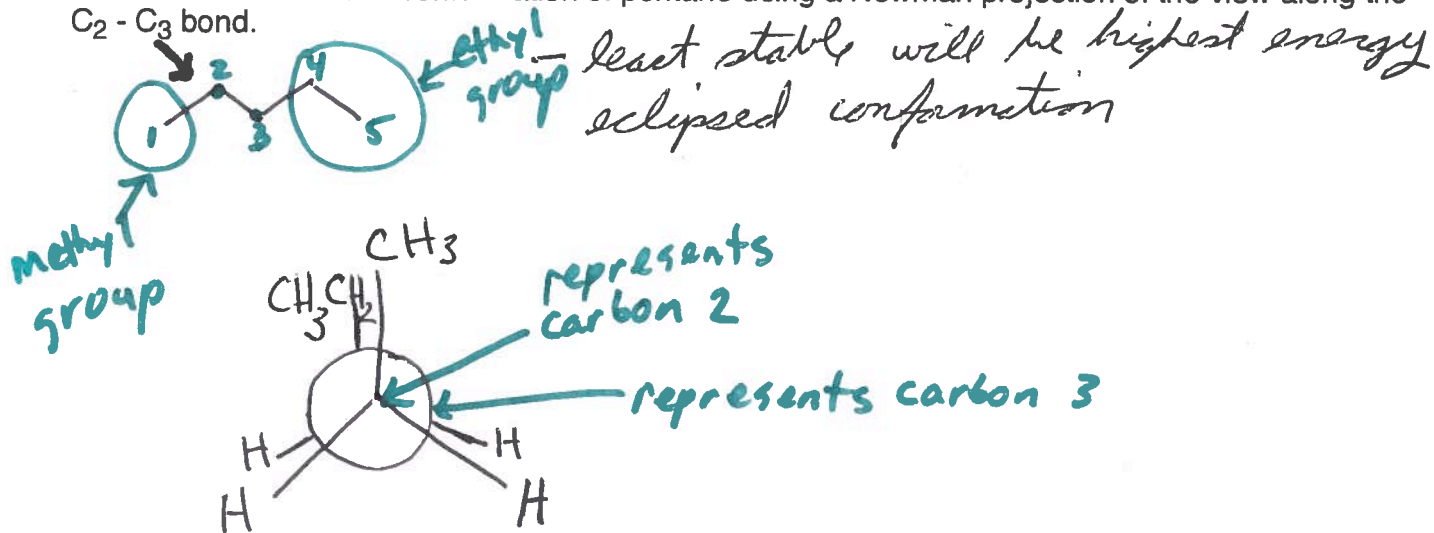 C₂ - C₃ bond.
ethyl group
- least stable will be highest energy
eclipsed conformation
1 2 3 4 5
methyl
group
CH₃
CH₃CH₂
represents
carbon 2
represents carbon 3
H H
H H